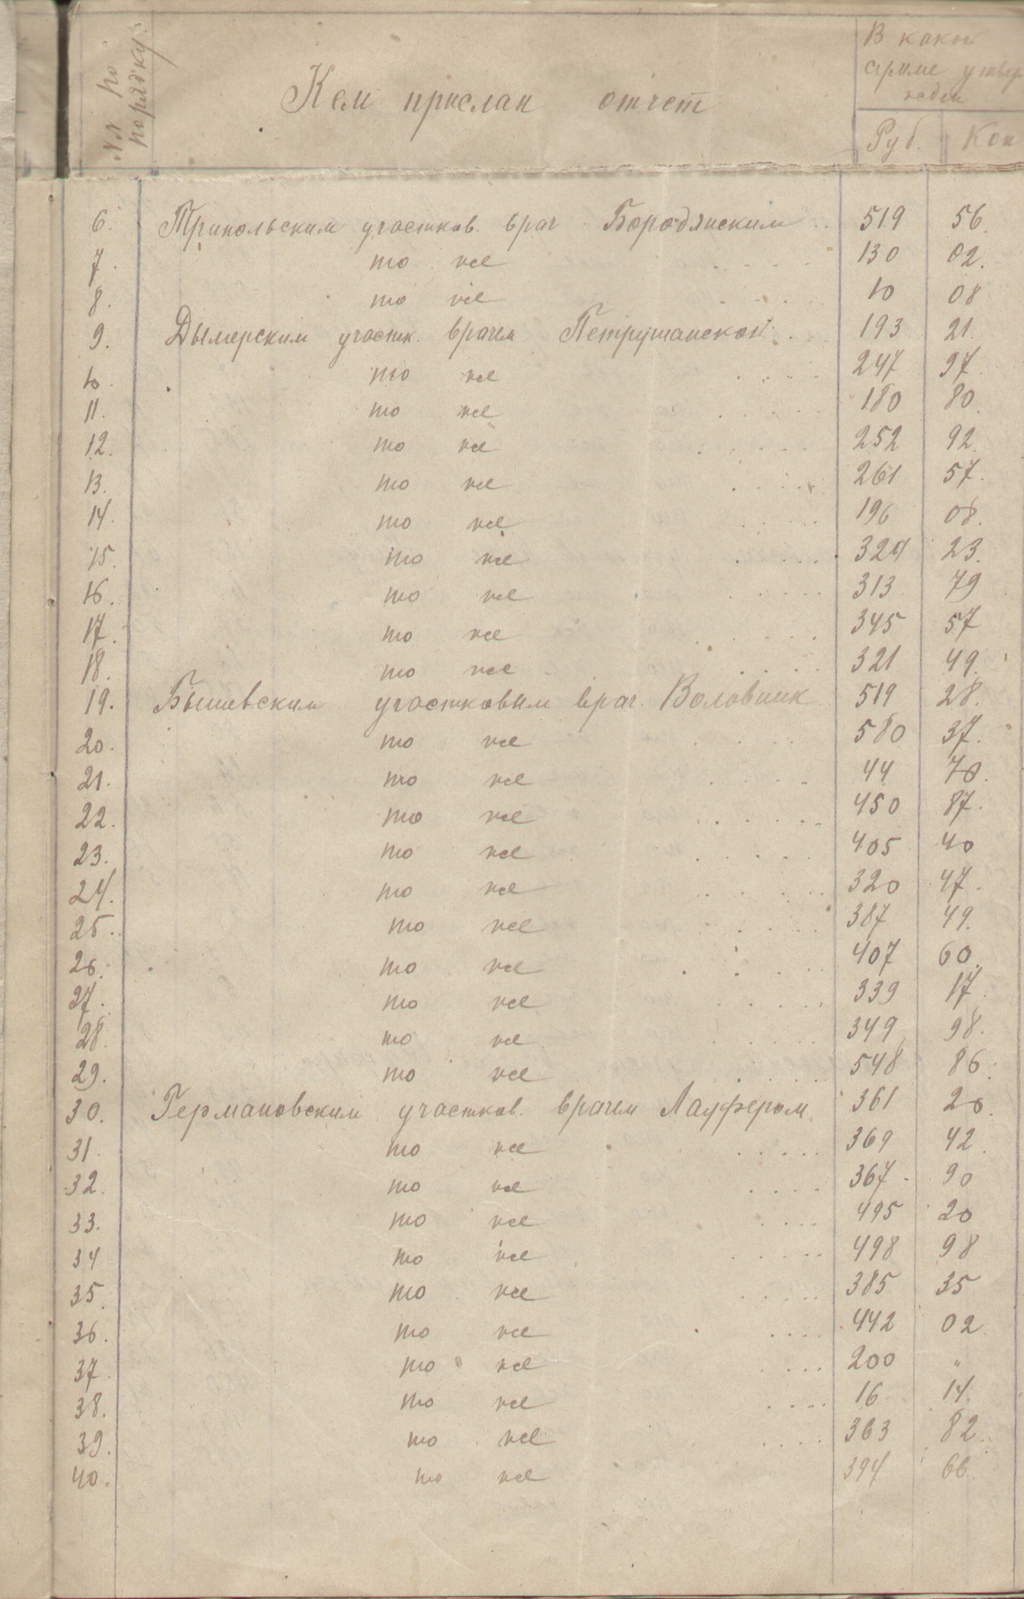 №№ по порядку:
Кем прислан отчет
В какой сумме утвержден
Руб. Коп
6. Трипольским участков. врач. Бородянским 519 56.
7. то же 130 02.
8. то же 10 08
9. Дымерским участк. врачем Петрушанской 193 21.
10. то же 247 97.
11. то же 180 80.
12. то же 252 92.
13. то же 261 57.
14. то же 196 08.
15. то же 324 23.
16. то же 313 79
17. то же 345 57
18. то же 321 49.
19. Бышевским участковым врач. Воловник 519 28.
20. то же 580 37.
21. то же 44 70.
22. то же 450 87.
23. то же 405 40
24. то же 320 47.
25. то же 387 49.
26. то же 407 60.
27. то же 339 17.
28. то же 349 98.
29. то же 548 86.
30. Германовским участков. врачем Лауфером 361 20.
31. то же 369 42.
32. то же 367 90
33. то же 495 20
34 то же 498 98
35. то же 385 35
36. то же 442 02
37. то же 200 "
38. то же 16 14.
39. то же 363 82.
40. то же 394 66